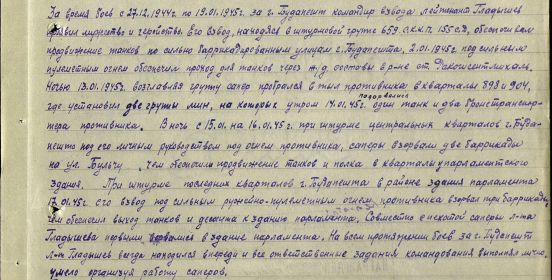 За время боев с 27.12.1944г. по 19.01.1945г. за г. Будапешт командир взвода лейтенант Гладышев
проявил мужество и геройство. Его взвод, находясь в штурмовой группе 659 с.к.к.п. 155 с.д, обеспечивал
продвижение танков по сильно баррикадированным улицам г. Будапешта, 2.01.1945г. под сильным
пулеметным огнем обеспечил проход для танков через ж.д. составы в р-не ст. Ракошсентмихаль.
Ночью 13.01.1945г. возглавляя группу сапер пробрался в тыл противника в кварталы 898 и 904,
где установил две группы мин, на которых утром 14.01.45г. подорвались один танк и два бронетранспор-
тера противника. В ночь с 15.01. на 16.01.45г. при штурме центральных кварталов г. Буда-
пешта под его личным руководством под огнем противника, саперы взорвали две баррикады
на ул. Бульчу, чем обеспечили продвижение танков и полка в кварталы у парламентского
здания. При штурме последних кварталов г. Будапешта в районе здания парламента
17.01.45г. его взвод под сильным ружейно-пулеметным огнем противника взорвал три баррикады,
чем обеспечил выход танков и десанта к зданию парламента. Совместно с пехотой саперы л-та
Гладышева первыми ворвались в здание парламента. На всем протяжении боев за г. Будапешт
л-т Гладышев всегда находился впереди и все ответственные задания командования выполнял лично,
умело организуя работу саперов.